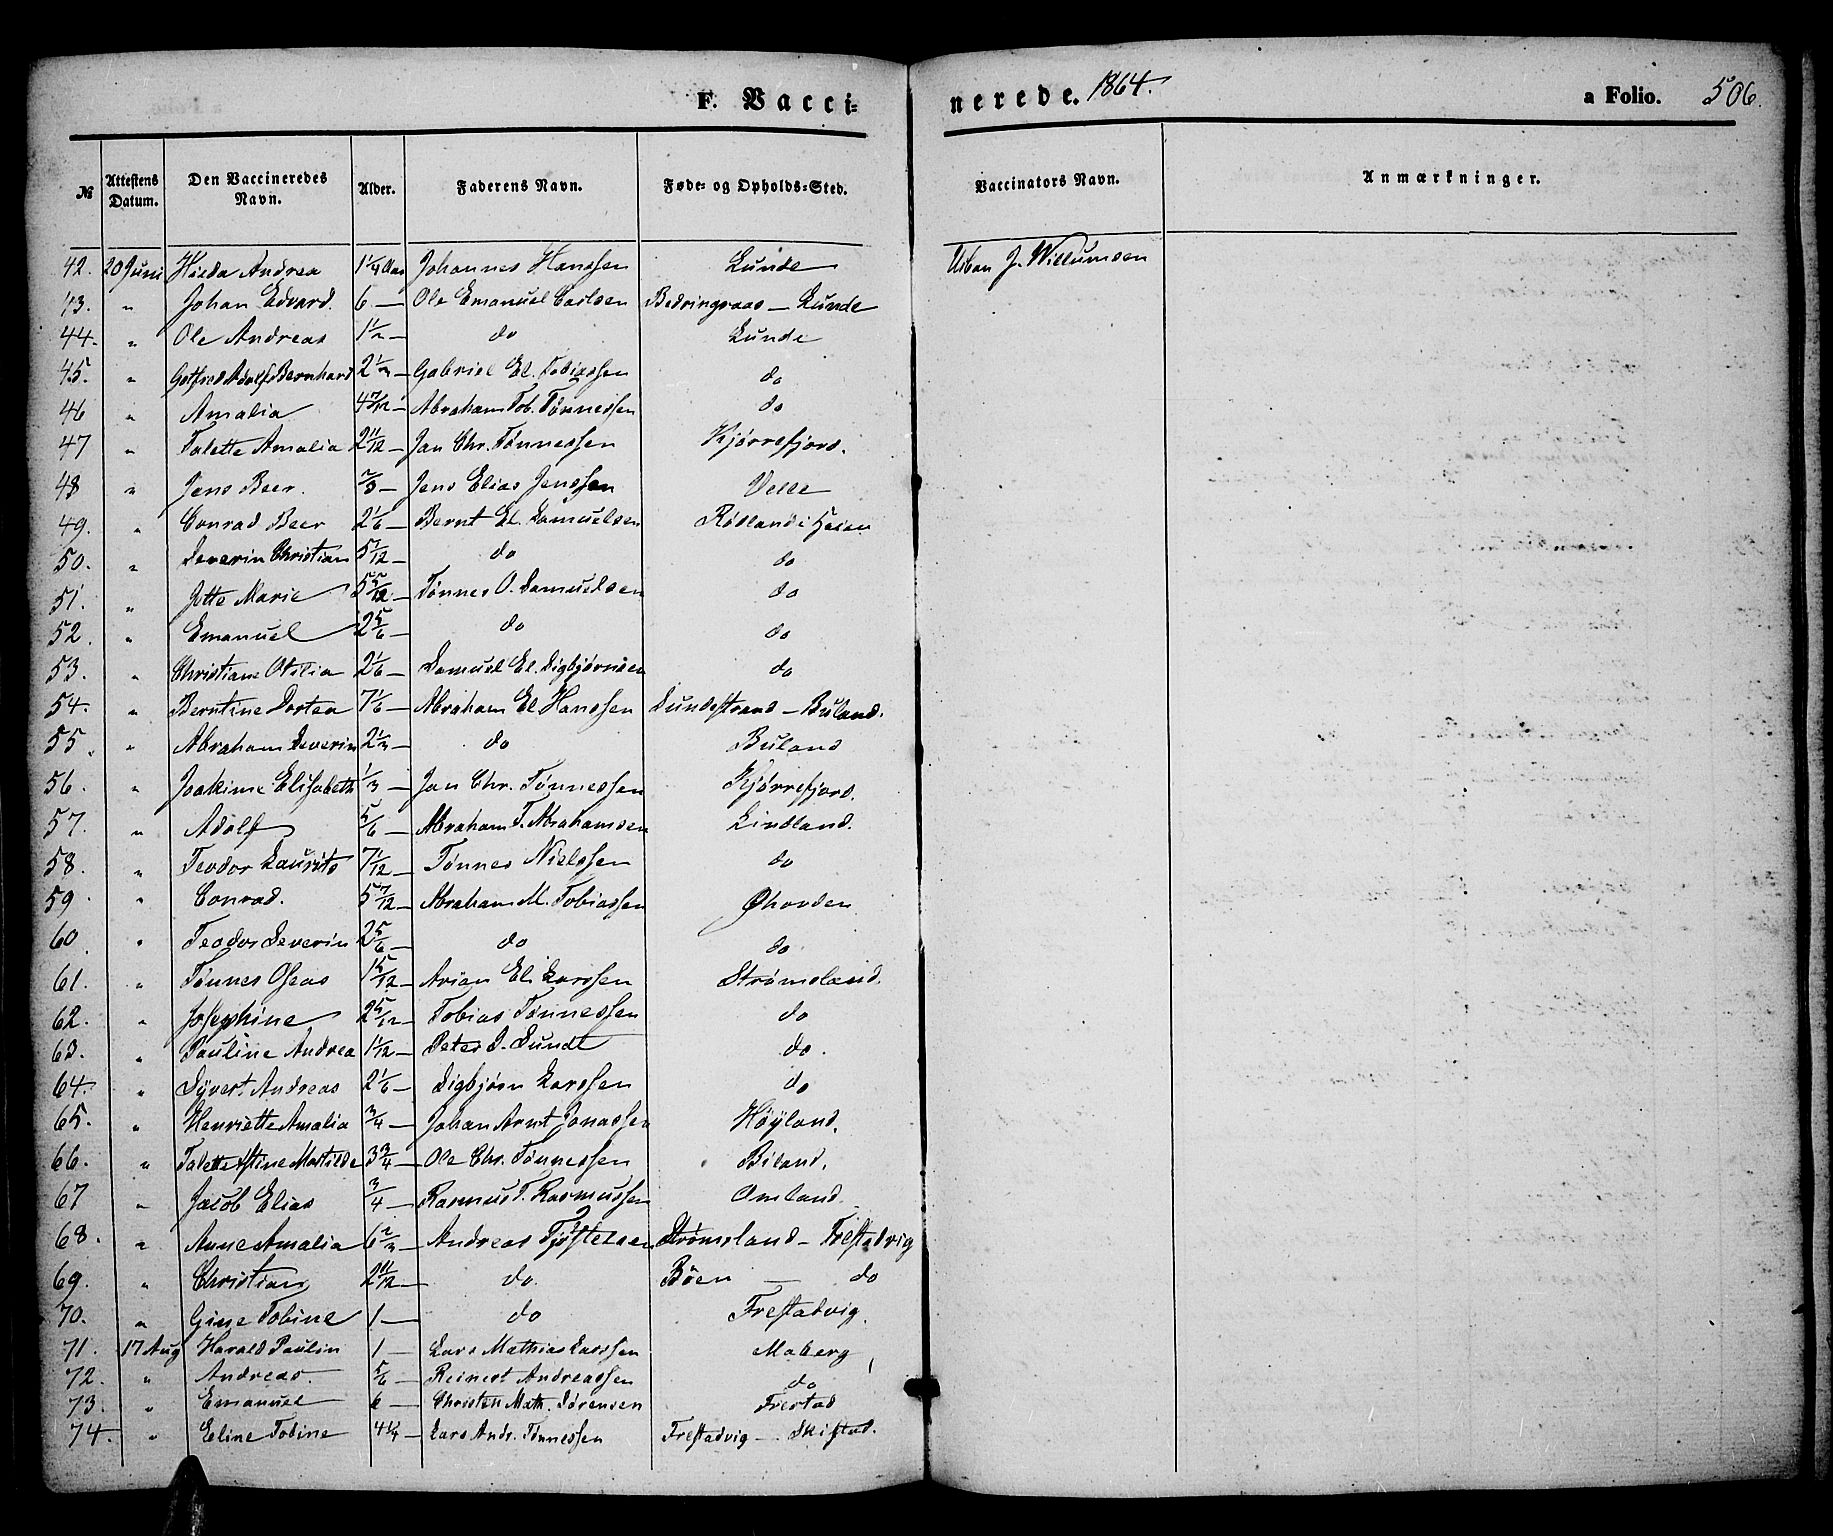 F. Vacci=
nerede. 1864.
a Folio. 506.
№ Attestens Datum. Den Vaccineredes Navn. Alder. Faderens Navn. Føde- og Opholds-Sted. Vaccinators Navn. Anmærkninger.
42. 20 Juni Andrea 1 1/4 Aar Johannes Hanssen Lunde J. Willumsen
43. " Johan Edvard. 6 — Ole Emanuel Carlsen — Lunde
44. " Ole Andreas 1 1/2 — do Lunde
45. " Gotfred Adolf Bernhard 2 1/2 — Gabriel El. Tobiassen do
46 " Amalia 4 7/12 — Abraham Tob. Tønnessen do
47 " Talette Amalia 2 11/12 — Jan Chr. Tønnessen Kjørrefjord.
48 " Jens Beer. 2/3 — Jens Elias Jenssen Velle
49. " Conrad Beer 2 1/6 — Bernt El. Samuelsen Rødland i Heien
50. " Severin Christian 5 7/12 — do do
51. " Jotte Marie 5 5/12 — Tønnes O. Samuelsen do
52. " Emanuel 2 5/6 — do do
53. " Christiane Otilia 2 1/6 — Samuel El. Sigbjørnsen do
54. " Berntine Dortea 7 1/6 — Abraham El Hanssen Sundestrand — Buland.
55. " Abraham Severin 2 1/2 — do Buland
56. " Joakime Elisabeth 1/3 — Jan Chr. Tønnessen Kjørrefjord.
57. " Adolf 5/6 — Abraham T. Abrahamsen Lindland.
58. " Teodor Laurits 7 1/12 — Tønnes Nielssen do
59. " Conrad. 5 7/12 — Abraham M. Tobiassen Øhovden
60 " Teodor Severin 2 5/6 — do do
61. " Tønnes Oseas 1 5/12 — Arian El. Larssen Strømsland.
62. " Josephine 2 5/12 — Tobias Tønnessen do
63. " Pauline Andrea 1 1/12 — Peter S. Sundt do.
64. " Syvert Andreas 2 1/6 — Sigbjørn Larssen do
65. " Henriette Amalia 3/4 — Johan Arnt Jonassen Høyland.
66. " Talette Stine Matilde 3 3/4 — Ole Chr. Tønnessen Biland.
67 " Jacob Elias 3/4 — Rasmus T. Rasmussen Omland
68. " Anne Amalia 6 2/3 — Andreas Tjøstelsen Strømsland — Frestadvig
69. " Christian 2 11/12 — do. Böen — do
70. " Gine Tobine 1 — do Frestadvig.
71. 17 Aug Harald Paulin 1 — Lars Mathias Larssen Moberg
72. " Andreas. 5/6 — Reinert Andreassen do
73. " Emanuel 6 — Christen Math. Sørensen Frestad
74. " Eline Tobine 4 1/4 — Lars Andr. Tønnessen Frestadvig — Skifstad.